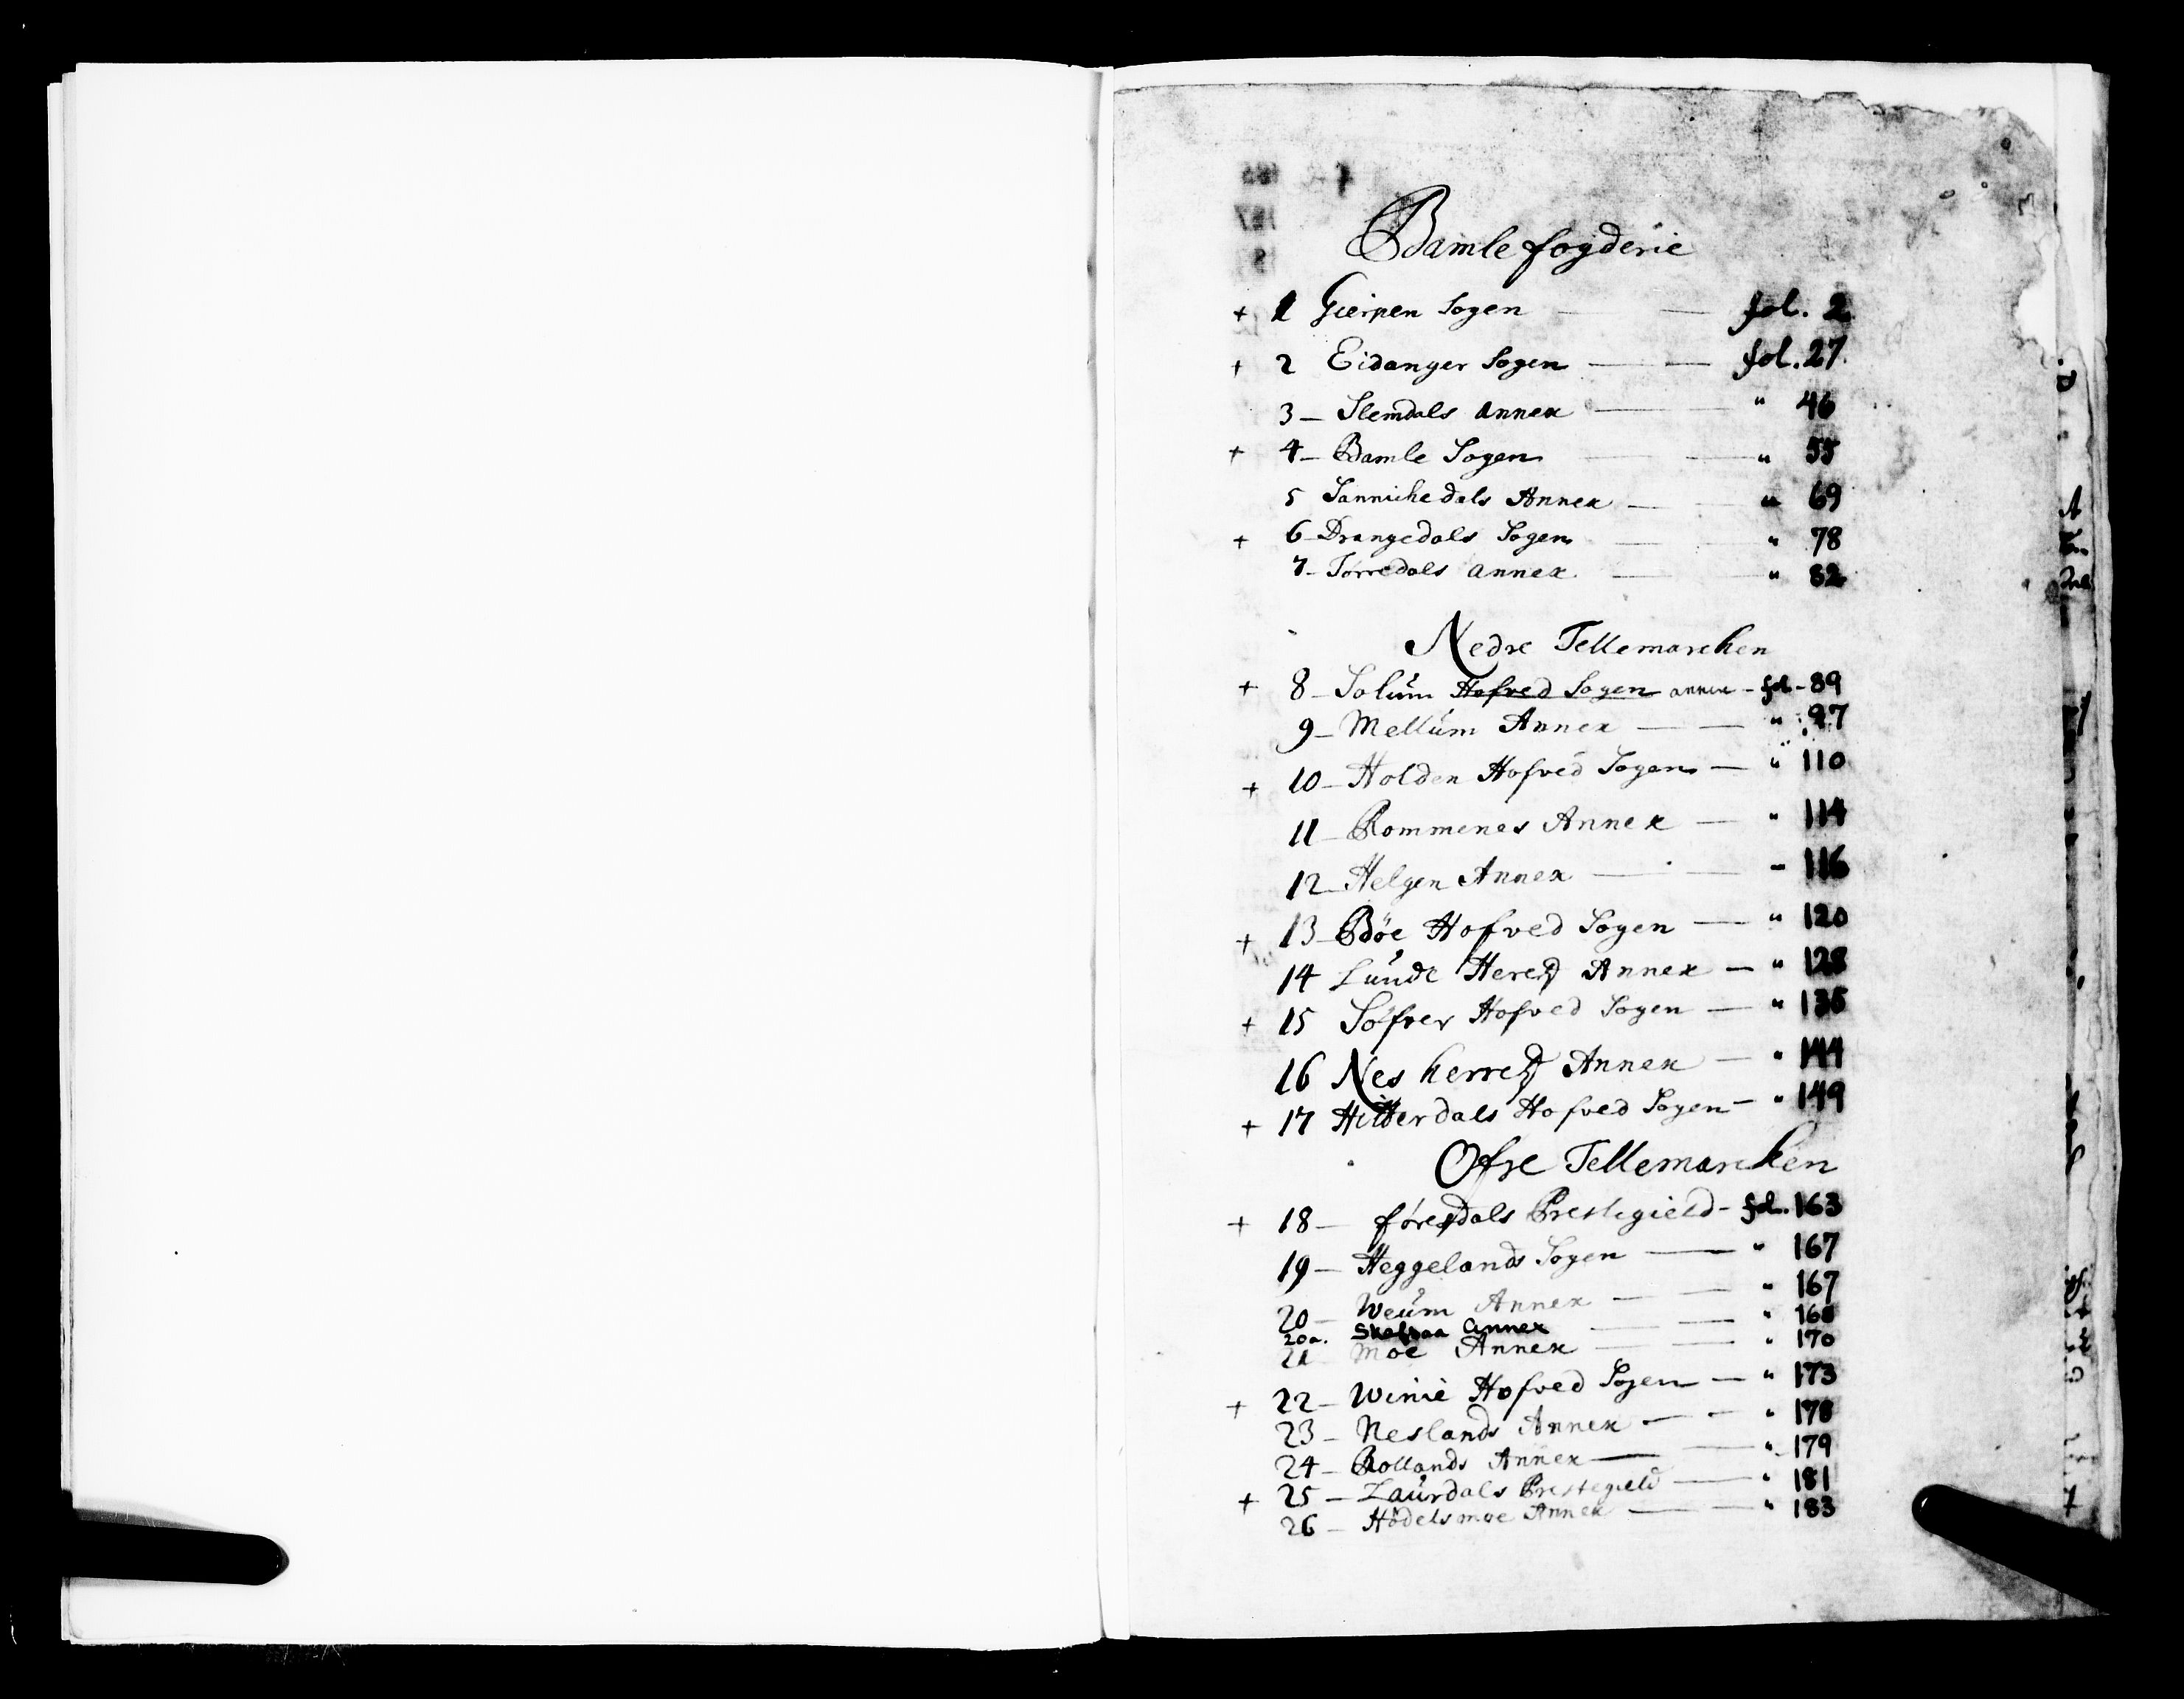 Bamle fogderie
+ 1 Gierpen Sogen — — fol. 2
+ 2 Eidanger Sogen — — fol. 27
3 — Slemdals Annex — — " 46
+ 4 — Bamle Sogen — — " 55
5 Sannichedals Annex — — " 69
+ 6 — Drangedals Sogen — — " 78
7 — Tørredals annex — — " 82
Nedre Tellemarchen
+ 8 — Solüm Hofved Sogen annex — fol — 89
9 — Mellüm Annex — — " 97
+ 10 — Holden Hofved Sogen — " 110
11 — Rommenes Annex — " 114
12 — Helgen Annex — — " 116
+ 13 — Bøe Hofved Sogen — " 120
14 Lunde Hered Annex — " 128
+ 15 Søfver Hofved Sogen — " 135
16 Nes herred Annex — " 144
+ 17 Hitterdals Hofved Sogen — " 149
Ofre Tellemarchen
+ 18 — føresdals Prestegield — fol. 163
19 — Heggelands Sogen — " 167
20 — Weüm Annex — — " 167
20a. Skafsaa Annex — — " 168
21 Moe Annex — — " 170
+ 22 — Winie Hofved Sogen — " 173
23 — Neslands Annex — — " 178
24 — Rollands Annex — — " 179
+ 25 — Laürdals Prestegield — " 181
26 — Hødelsmoe Annex — — " 183